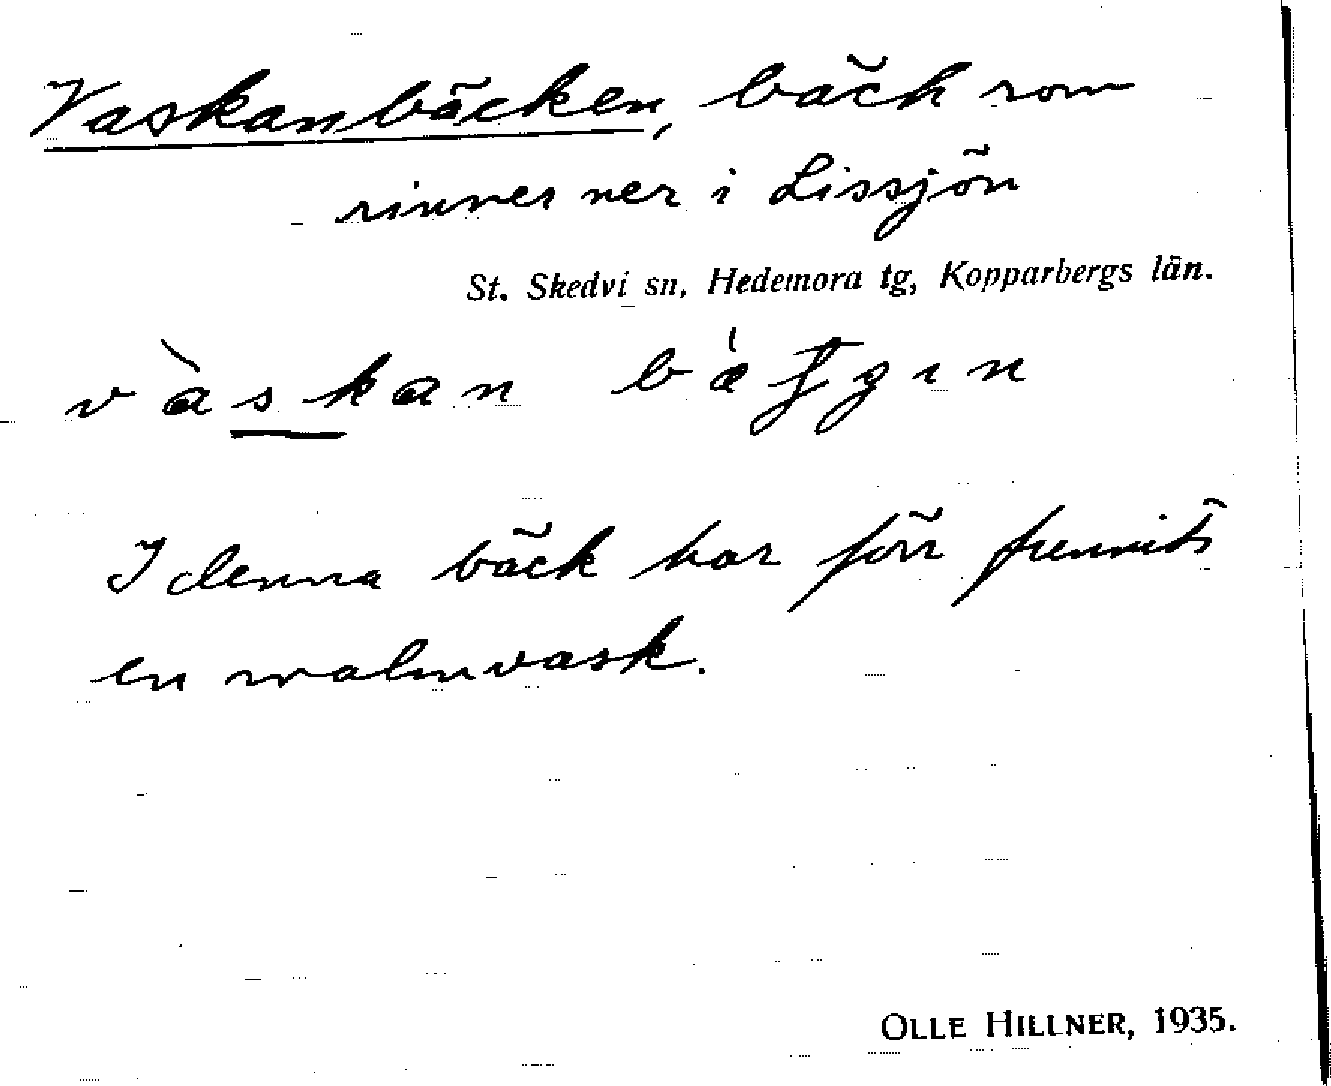 Vaskanbäcken, bäck som
rinner ner i Lissjön
St. Skedvi sn, Hedemora tg, Kopparbergs län.
vàskan
I denna bäck har förr funnits
en malmvask.
OLLE HILLNER, 1935.